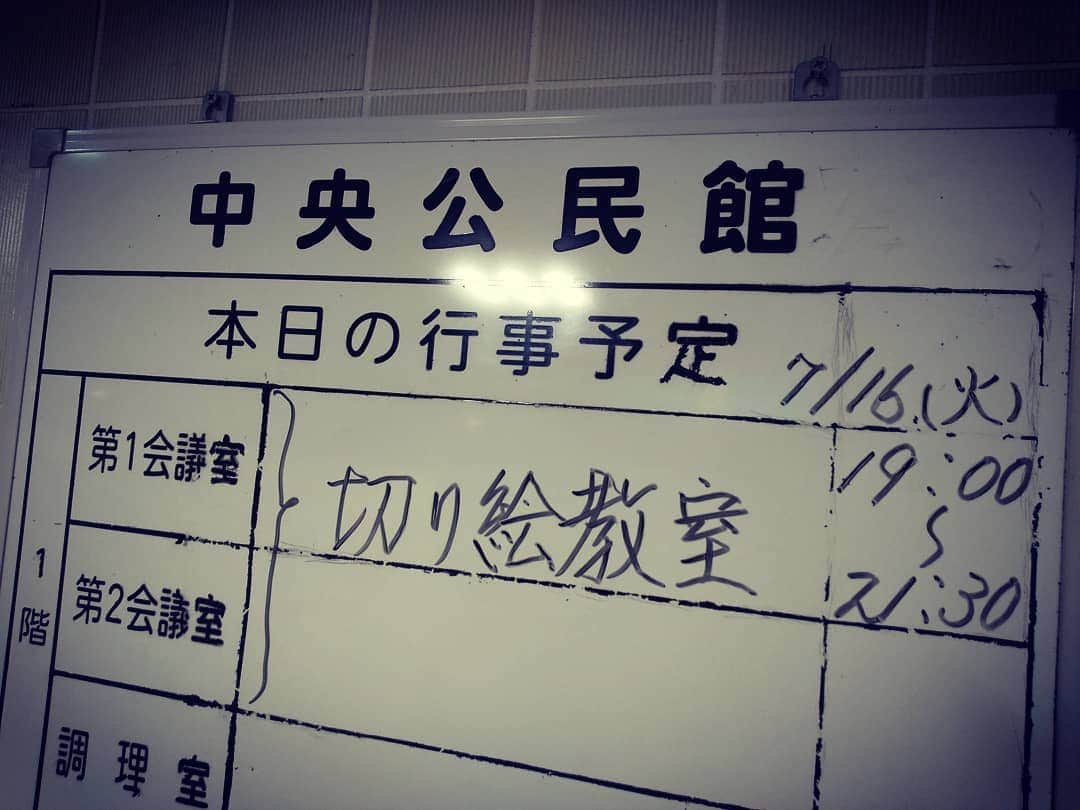 中央公民館
本日の行事予定
7/16.(火)
1階
第1会議室
切り絵教室
19:00
〜
21:30
第2会議室
調理室